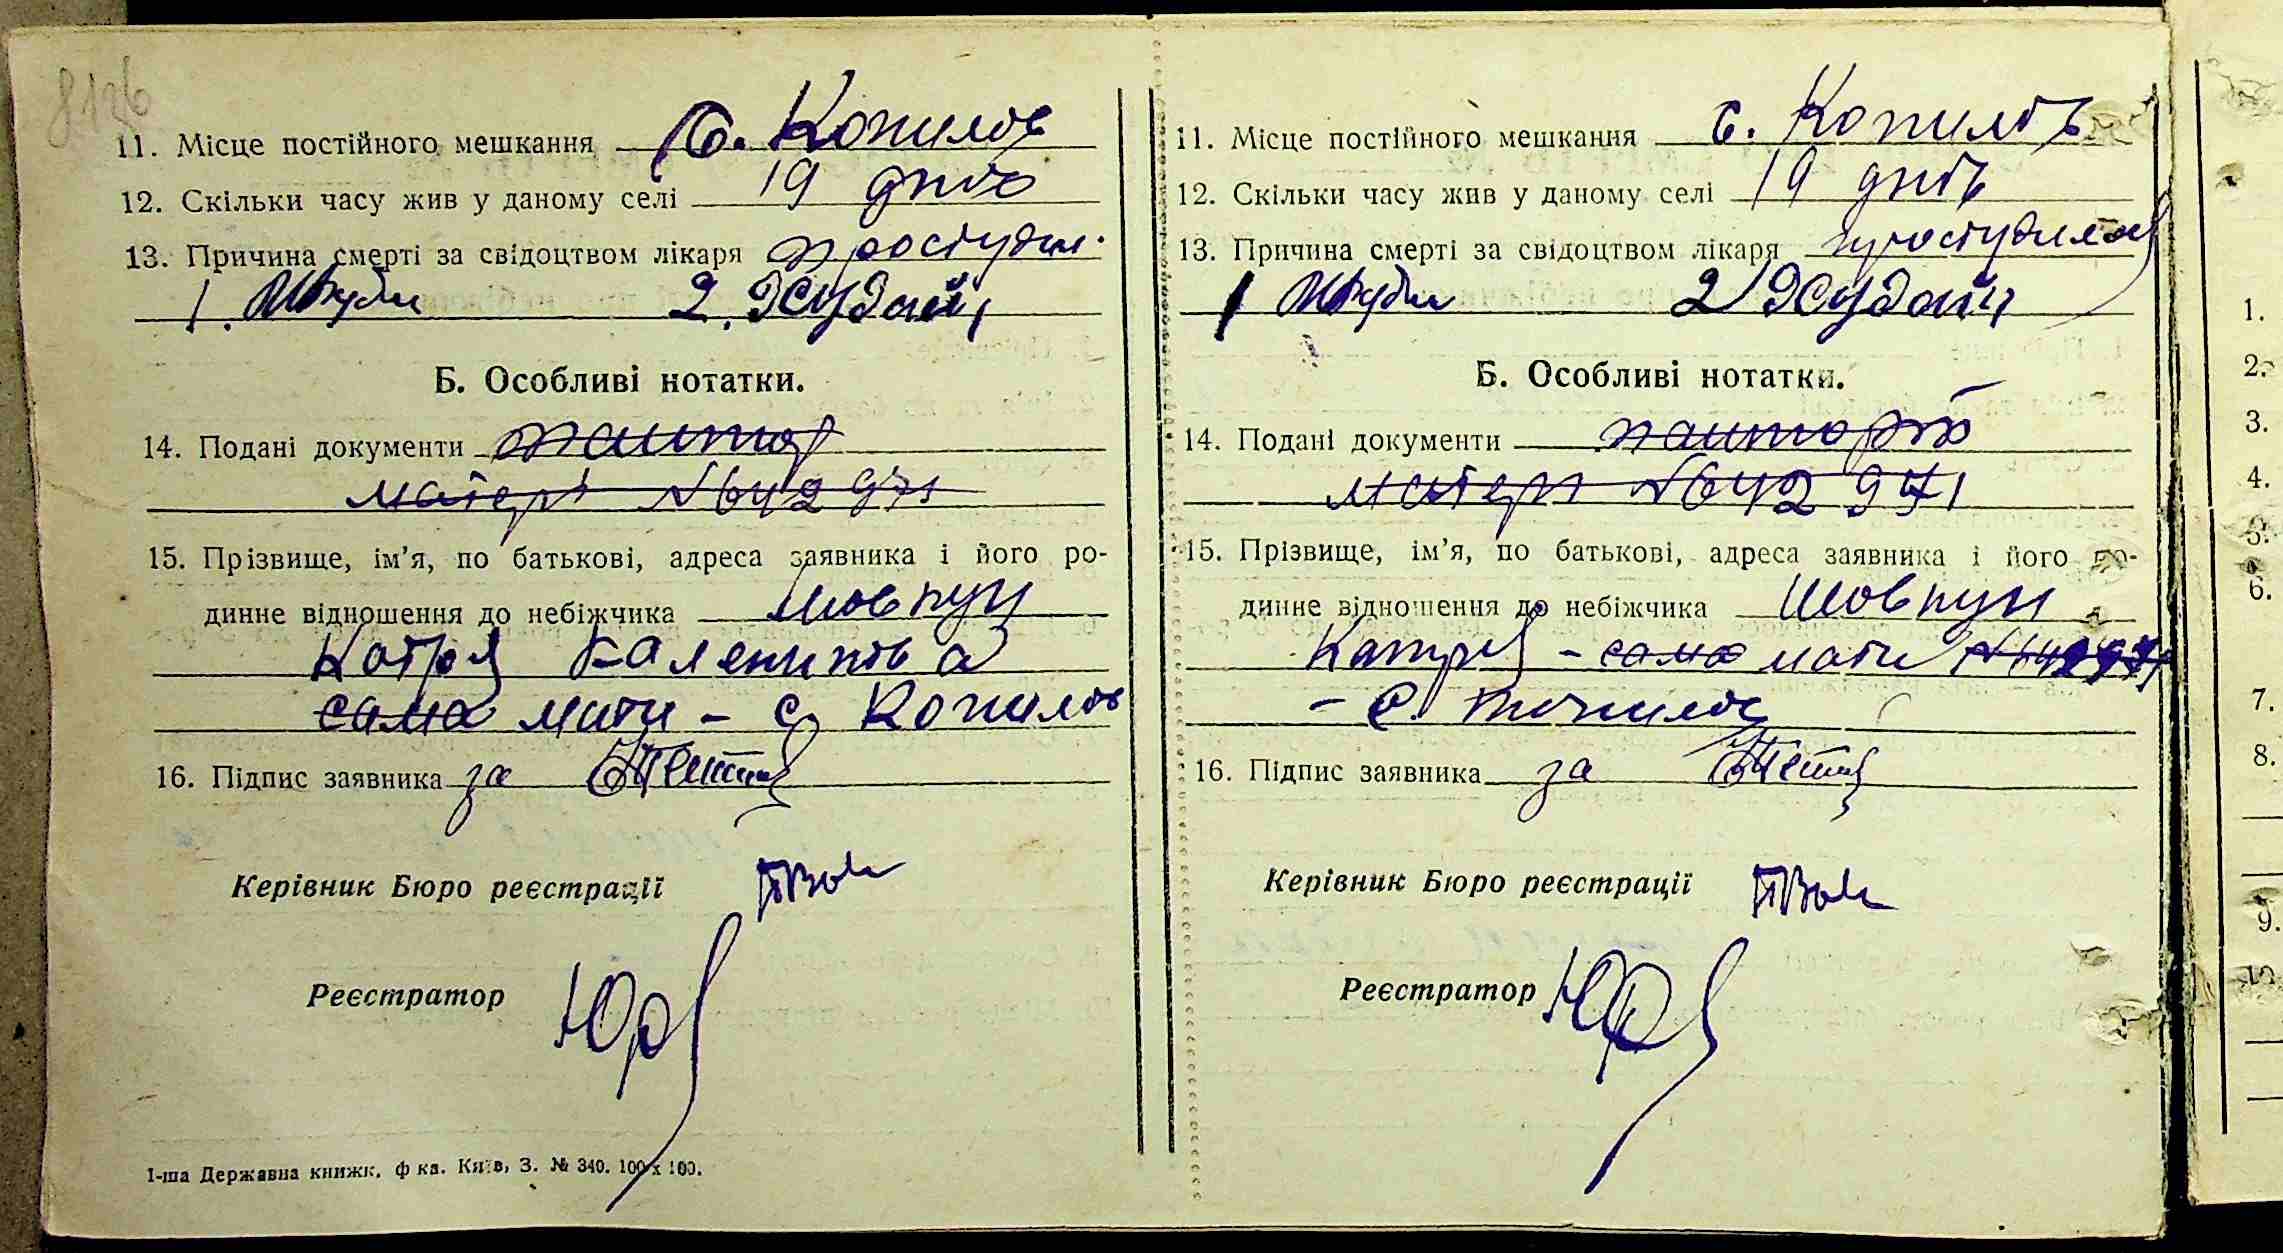 8126
11. Місце постійного мешкання с. Копилов
12. Скільки часу жив у даному селі 19 днів
13. Причина смерті за свідоцтвом лікаря простудил.
1. 2.
Б. Особливі нотатки.
14. Подані документи пашпор
матері №642971
15. Прізвище, ім'я, по батькові, адреса заявника і його ро-
динне відношення до небіжчика Шовкун
Катря Каленикова
сама мати - с Копилов
16. Підпис заявника за
Керівник Бюро реєстрації
Реєстратор
1-ша Державна книжк. ф-ка. Київ, З. № 340. 100 х 100.
11. Місце постійного мешкання с. Копилов
12. Скільки часу жив у даному селі 19 днів
13. Причина смерті за свідоцтвом лікаря простудилась
1 2
Б. Особливі нотатки.
14. Подані документи пашпорт
матери №642971
15. Прізвище, ім'я, по батькові, адреса заявника і його ро-
динне відношення до небіжчика Шовкун
Катря - сама мати №642971
- с.
16. Підпис заявника за
Керівник Бюро реєстрації
Реєстратор
1.
2.
3.
4.
5.
6.
7.
8.
9.
10.